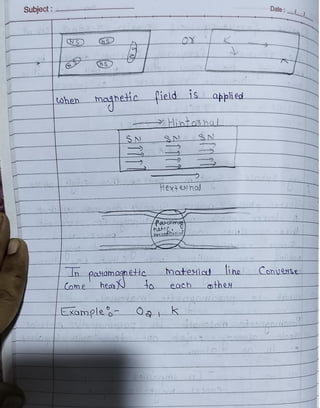 Subject :
Date :
NS
NS
NS
or
when magnetic field is applied
Hinternal
S N S N S N
Hexternal
Paramag
netic
material
In paramagnetic material line Converse
Come near to each other
Example :- O2, K